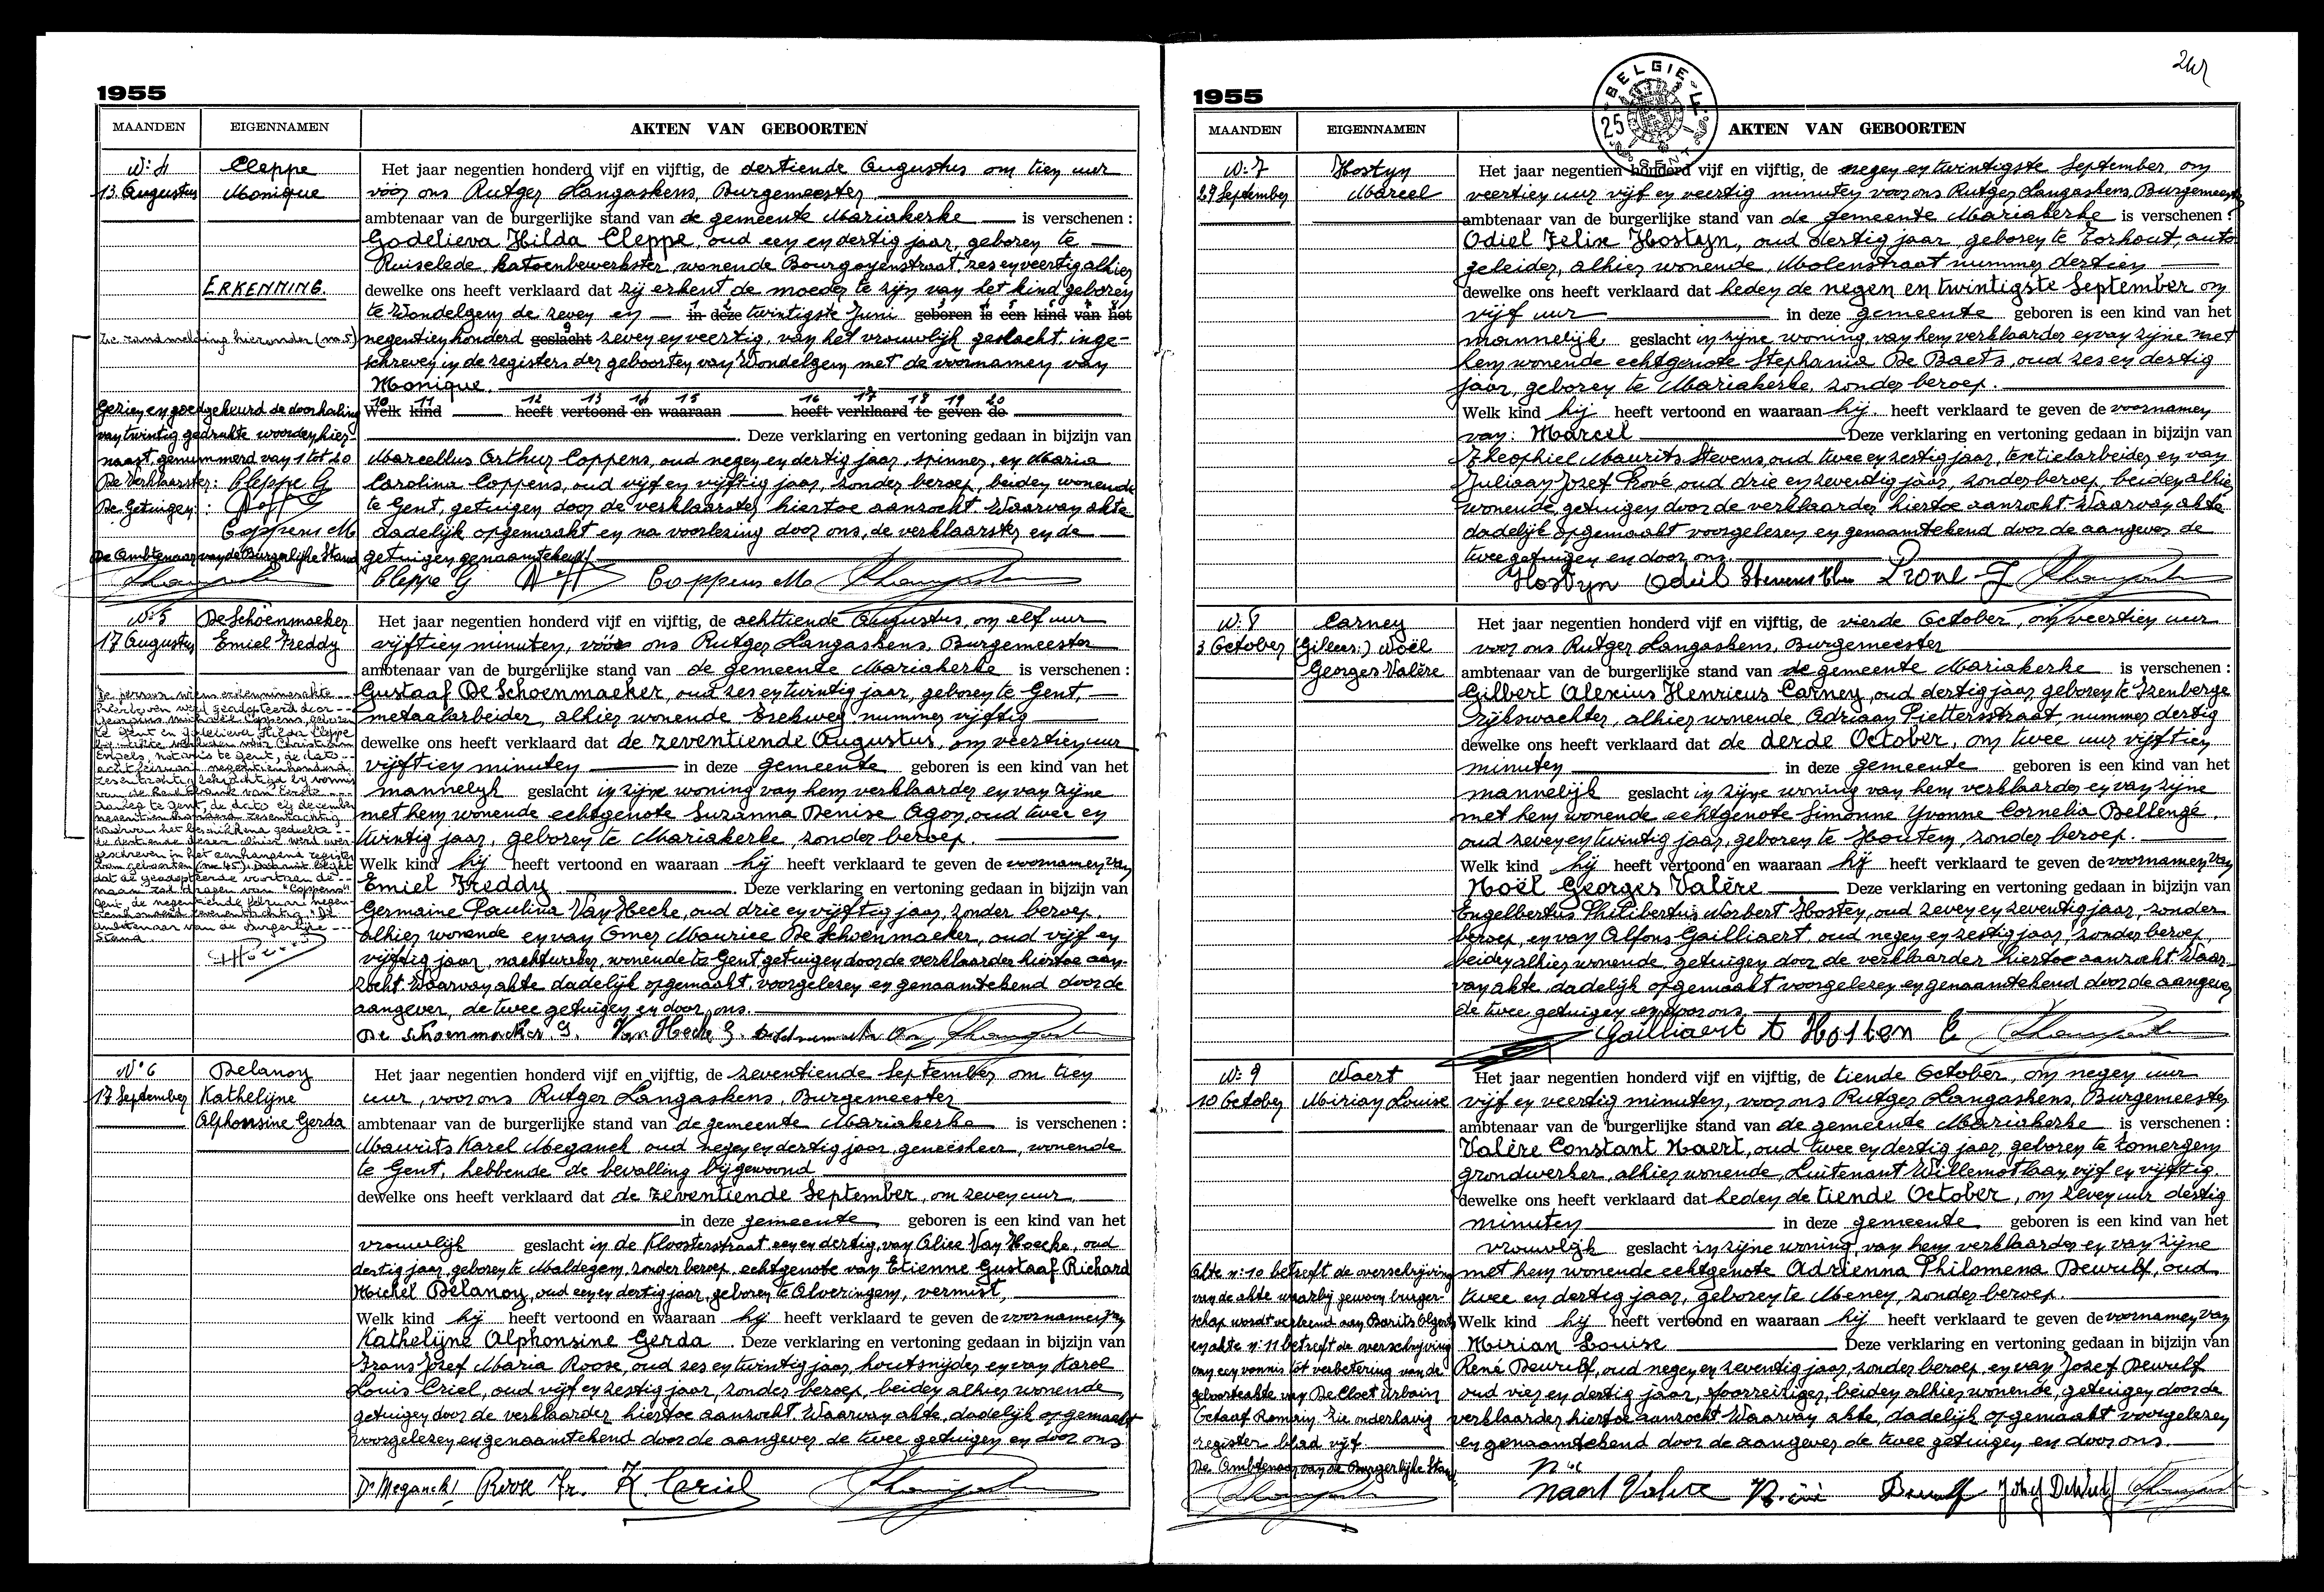 1955
MAANDEN EIGENNAMEN AKTEN VAN GEBOORTEN
N: 4 Cleppe Het jaar negentien honderd vijf en vijftig, de dertiende Augustus om tien uur
13 Augustus Monique voor ons Rutger Langaskens, Burgemeester
ambtenaar van de burgerlijke stand van de gemeente Mariakerke is verschenen :
Godelieva Hilda Cleppe, oud een en dertig jaar, geboren te
Ruiselede, katoenbewerkster, wonende Bourgoyenstraat, zes en veertig alhier
ERKENNING. dewelke ons heeft verklaard dat zij erkent de moeder te zijn van het kind geboren
te Wondelgem de zeven en in deze twintigste Juni geboren is een kind van het
Zie randmelding hieronder (nr. 5) negentien honderd geslacht zeven en veertig, van het vrouwelijk geslacht inge-
schreven in de registers der geboorten van Wondelgem met de voornamen van
Monique.
10 11 12 13 14 15 16 17 18 19 20
Gezien en goedgekeurd de doorhaling Welk kind heeft vertoond en waaraan heeft verklaard te geven de
van twintig gedrukte woorden hier- . Deze verklaring en vertoning gedaan in bijzijn van
naast, genummerd van 1 tot 20 Marcellus Arthur Coppens, oud negen en dertig jaar, spinner, en Maria
De Verklaarster: Cleppe G Carolina Coppens, oud vijf en vijftig jaar, zonder beroep, beiden wonende
De Getuigen : te Gent, getuigen door de verklaarster hiertoe aanzocht. Waarvan akte
Coppens M dadelijk opgemaakt en na voorlezing door ons, de verklaarster en de
De Ambtenaar van de Burgerlijke Stand getuigen genaamtekend.
Cleppe G Coppens M
N: 5 De Schoenmaeker Het jaar negentien honderd vijf en vijftig, de achttiende Augustus, om elf uur
17 Augustus Emiel Freddy vijftien minuten, vóór ons Rutger Langaskens, Burgemeester
ambtenaar van de burgerlijke stand van de gemeente Mariakerke is verschenen :
De persoon wiens erkenningsakte Gustaaf De Schoenmaeker, oud zes en twintig jaar, geboren te Gent,
hierboven werd geadopteerd door metaalarbeider, alhier wonende Eeekweg nummer vijftig
Coppens, geboren
te Gent en Godelieva Hilda Cleppe dewelke ons heeft verklaard dat de zeventiende Augustus, om veertien uur
vijftien minuten in deze gemeente geboren is een kind van het
mannelijk geslacht in zijne woning van hem verklaarder en van zijne
met hem wonende echtgenote Suzanna Denise Agon, oud twee en
twintig jaar, geboren te Mariakerke, zonder beroep.
Welk kind hij heeft vertoond en waaraan hij heeft verklaard te geven de voornamen van
Emiel Freddy . Deze verklaring en vertoning gedaan in bijzijn van
Germaine Paulina Van Hecke, oud drie en vijftig jaar, zonder beroep,
alhier wonende en van Omer Maurice De Schoenmaeker, oud vijf en
vijftig jaar, nachtwaker, wonende te Gent getuigen door de verklaarder hiertoe aan-
zocht. Waarvan akte dadelijk opgemaakt, voorgelezen en genaamtekend door de
aangever, de twee getuigen en door ons.
De Schoenmaeker. G. Van Hecke G.
N° 6 Delanoy Het jaar negentien honderd vijf en vijftig, de zeventiende September om tien
17 September Kathelijne uur, voor ons Rutger Langaskens, Burgemeester
Alphonsine Gerda ambtenaar van de burgerlijke stand van de gemeente Mariakerke is verschenen :
Maurits Karel Meganck oud negen en dertig jaar, geneesheer, wonende
te Gent, hebbende de bevalling bijgewoond
dewelke ons heeft verklaard dat de zeventiende September, om zeven uur,
in deze gemeente, geboren is een kind van het
vrouwelijk geslacht in de Kloosterstraat een en dertig, van Alice Van Hoecke, oud
dertig jaar, geboren te Maldegem, zonder beroep, echtgenote van Etienne Gustaaf Richard
Michel Delanoy, oud een en dertig jaar, geboren te Alveringem, vermist,
Welk kind hij heeft vertoond en waaraan hij heeft verklaard te geven de voornamen van
Kathelijne Alphonsine Gerda . Deze verklaring en vertoning gedaan in bijzijn van
Frans Jozef Maria Roose, oud zes en twintig jaar, houtsnijder, en van Karel
Louis Criel, oud vijf en zestig jaar, zonder beroep, beiden alhier wonende,
getuigen door de verklaarder hiertoe aanzocht. Waarvan akte, dadelijk opgemaakt
voorgelezen en genaamtekend door de aangever de twee getuigen en door ons
Dr Meganck Roose Fr. K. Criel
1955
BELGIE
25
MAANDEN EIGENNAMEN AKTEN VAN GEBOORTEN
N: 7 Hostyn Het jaar negentien honderd vijf en vijftig, de negen en twintigste September, om
29 September Marcel veertien uur vijf en veertig minuten voor ons Rutger Langaskens, Burgemeester
ambtenaar van de burgerlijke stand van de gemeente Mariakerke is verschenen :
Odiel Felix Hostyn, oud dertig jaar, geboren te Torhout, auto
geleider, alhier wonende, Molenstraat nummer dertien
dewelke ons heeft verklaard dat heden de negen en twintigste September om
vijf uur in deze gemeente geboren is een kind van het
mannelijk geslacht in zijne woning van hem verklaarder en van zijne met
hem wonende echtgenote Stephania De Baets, oud zes en dertig
jaar, geboren te Mariakerke, zonder beroep.
Welk kind hij heeft vertoond en waaraan hij heeft verklaard te geven de voornamen
van: Marcel Deze verklaring en vertoning gedaan in bijzijn van
Theophiel Maurits Stevens, oud twee en zestig jaar, textielarbeider en van
Juliaan Jozef Prové oud drie en zeventig jaar, zonder beroep, beiden alhier
wonende, getuigen door de verklaarder hiertoe aanzocht. Waarvan akte
dadelijk opgemaakt voorgelezen en genaamtekend door de aangever de
twee getuigen en door ons.
Hostyn Odiel Stevens
N: 8 Carney Het jaar negentien honderd vijf en vijftig, de vierde October, om veertien uur
3 October Noël voor ons Rutger Langaskens, Burgemeester
Georges Valère ambtenaar van de burgerlijke stand van de gemeente Mariakerke is verschenen :
Gilbert Alexius Henricus Carney, oud dertig jaar, geboren te Izenberge
rijkswachter, alhier wonende, Adriaan Pietersstraat, nummer dertig
dewelke ons heeft verklaard dat de derde October, om twee uur vijftien
minuten in deze gemeente geboren is een kind van het
mannelijk geslacht in zijne woning van hem verklaarder en van zijne
met hem wonende echtgenote Simonne Yvonne Cornelia Bellengé,
oud zeven en twintig jaar, geboren te Houtem, zonder beroep.
Welk kind hij heeft vertoond en waaraan hij heeft verklaard te geven de voornamen van
Noël Georges Valère Deze verklaring en vertoning gedaan in bijzijn van
Engelbertus Philibertus Norbert Hosten, oud zeven en zeventig jaar, zonder
beroep, en van Alfons Gailliaert, oud negen en zestig jaar, zonder beroep
beiden alhier wonende, getuigen door de verklaarder hiertoe aanzocht. Waar-
van akte, dadelijk opgemaakt voorgelezen en genaamtekend door de aangever
de twee getuigen en door ons.
Gailliaert A Hosten E
N: 9 Naert Het jaar negentien honderd vijf en vijftig, de tiende October, om negen uur
10 October Mirian Louise vijf en veertig minuten, voor ons Rutger Langaskens, Burgemeester
ambtenaar van de burgerlijke stand van de gemeente Mariakerke is verschenen :
Valère Constant Naert, oud twee en dertig jaar, geboren te Zomergem
grondwerker, alhier wonende, Luitenant Willemotlaan, vijf en vijftig.
dewelke ons heeft verklaard dat heden de tiende October, om zeven uur dertig
minuten in deze gemeente geboren is een kind van het
vrouwelijk geslacht in zijne woning, van hem verklaarder en van zijne
Akte n: 10 betreft de overschrijving met hem wonende echtgenote Adrienna Philomena Dewulf, oud
van de akte waarbij gewoon burger- twee en dertig jaar, geboren te Menen, zonder beroep.
schap wordt verleend aan Welk kind hij heeft vertoond en waaraan hij heeft verklaard te geven de voornamen van
en akte n: 11 betreft de overschrijving Mirian Louise Deze verklaring en vertoning gedaan in bijzijn van
van een vonnis tot verbetering van de René Dewulf, oud negen en zeventig jaar, zonder beroep, en van Jozef Dewulf
geboorteakte van De Cloet Urbain oud vier en dertig jaar, beiden alhier wonende, getuigen door de
Romain, zie onderhavig verklaarder hiertoe aanzocht. Waarvan akte, dadelijk opgemaakt voorgelezen
register blad vijf. en genaamtekend door de aangever de twee getuigen en door ons.
De Ambtenaar van de Burgerlijke Stand
Naert Valère Dewulf